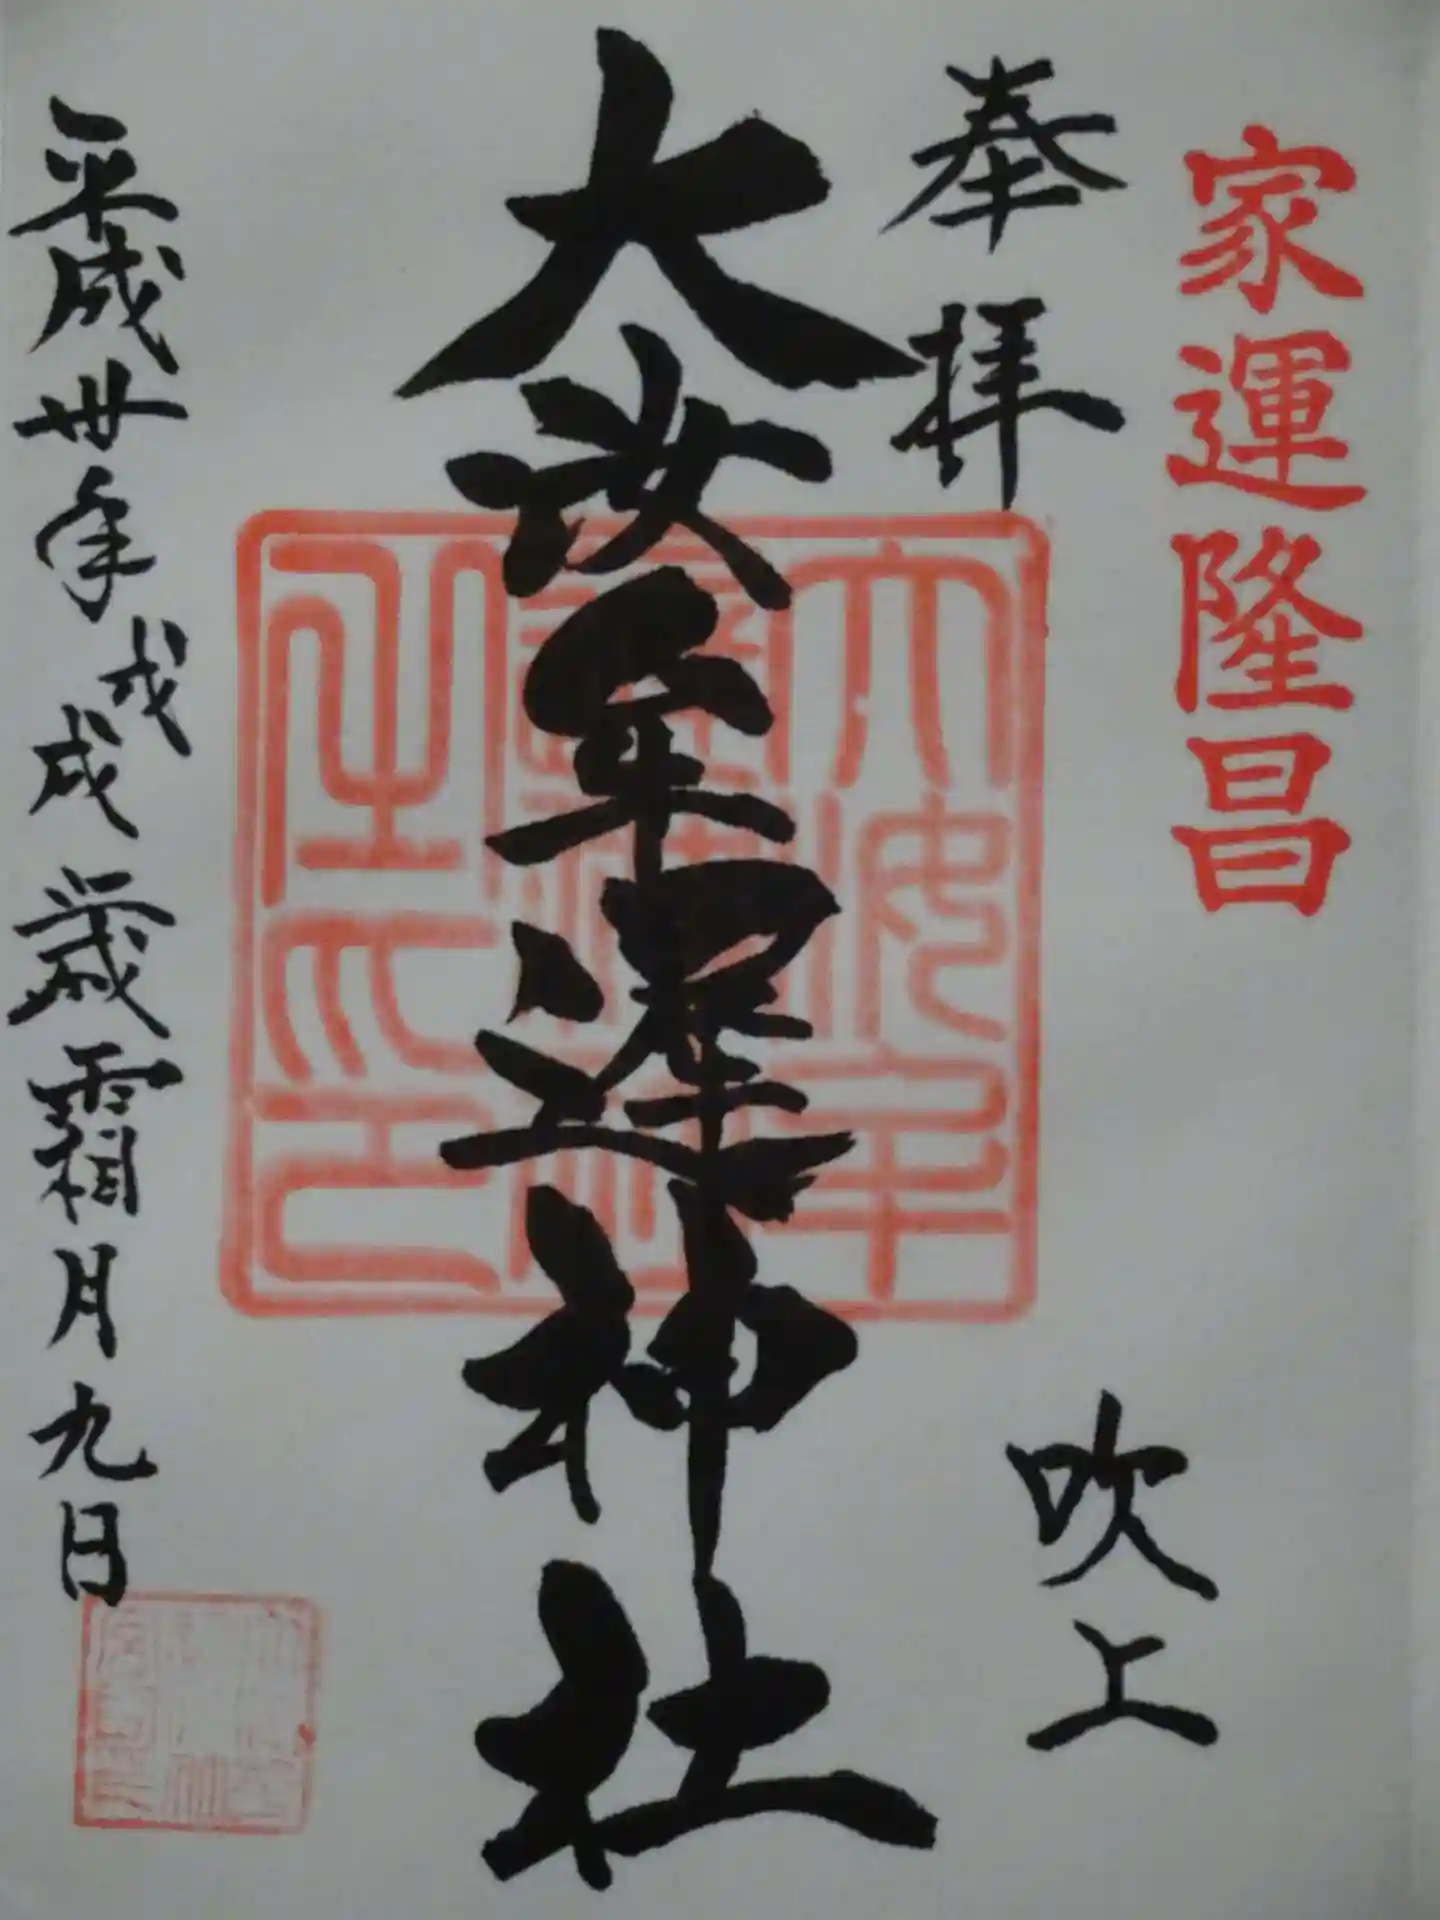 家運隆昌
奉拝
吹上
大汝牟遅神社
平成卅年戊戌歳霜月九日